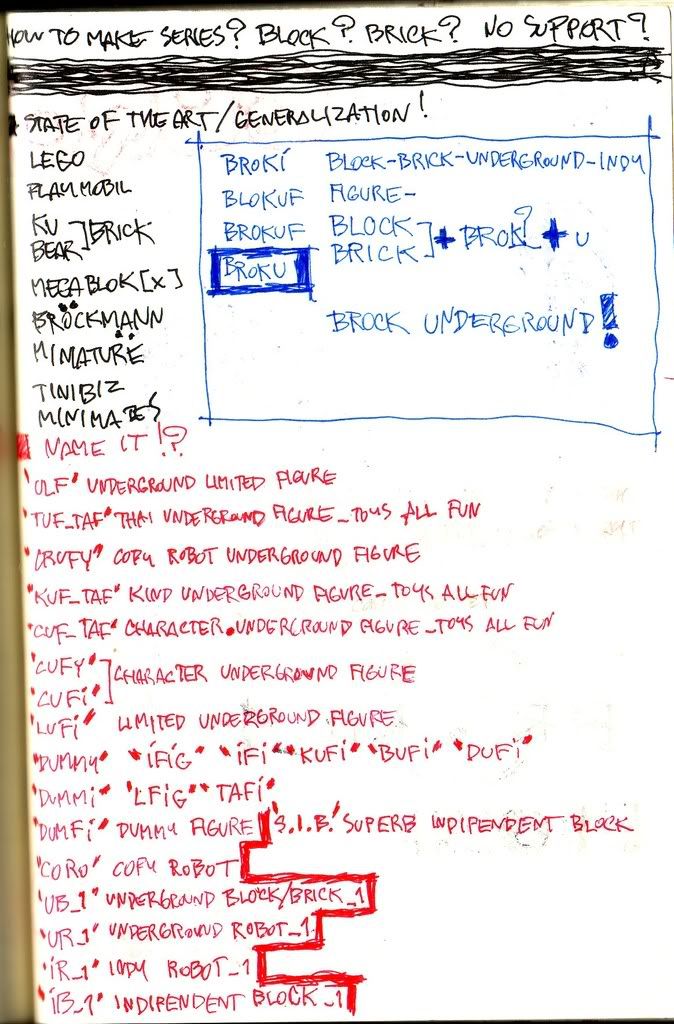 HOW TO MAKE SERIES? BLOCK? BRICK? NO SUPPORT?
STATE OF THE ART/GENERALIZATION!
LEGO
PLAYMOBIL
KU
BEAR ] BRICK
MEGABLOK[X]
BRÖCKMANN
MINIATURE
TINIBIZ
MINIMATES
BROKI BLOCK-BRICK-UNDERGROUND-INDY
BLOKUF FIGURE-
BROKUF BLOCK
BRICK ] + BROK? + U
BROKU
BROCK UNDERGROUND!
NAME IT!?
"ULF" UNDERGROUND LIMITED FIGURE
"TUF_TAF" THAI UNDERGROUND FIGURE_TOYS ALL FUN
"CRUFY" COPY ROBOT UNDERGROUND FIGURE
"KUF_TAF" KIND UNDERGROUND FIGURE_TOYS ALL FUN
"CUF_TAF" CHARACTER.UNDERGROUND FIGURE_TOYS ALL FUN
"CUFY"
"CUFi" ] CHARACTER UNDERGROUND FIGURE
"LUFi" LIMITED UNDERGROUND FIGURE
"DUMMY" "iFiG" "iFi" "KUFi" "BUFi" "DUFi"
"DUMMi" "LFiG" "TAFi"
"DUMFi" DUMMY FIGURE "S.I.B." SUPERB INDIPENDENT BLOCK
"CORO" COPY ROBOT
"UB_1" UNDERGROUND BLOCK/BRICK_1
"UR_1" UNDERGROUND ROBOT_1
"iR_1" INDY ROBOT_1
"iB_1" INDIPENDENT BLOCK_1